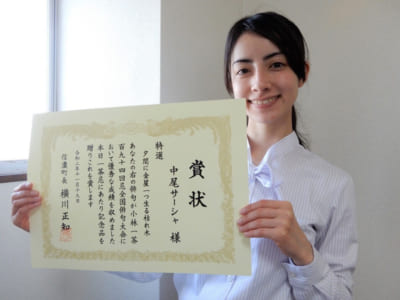 賞状
特選
中尾サーシャ 様
夕闇に金星一つ生る枯れ木
あなたの右の俳句が小林一茶
百九十四回忌全国俳句大会に
おいて優秀な成績を収めました
本日一茶忌にあたり記念品を
贈りこれを賞します
令和二年十一月十九日
信濃町長 横川正知